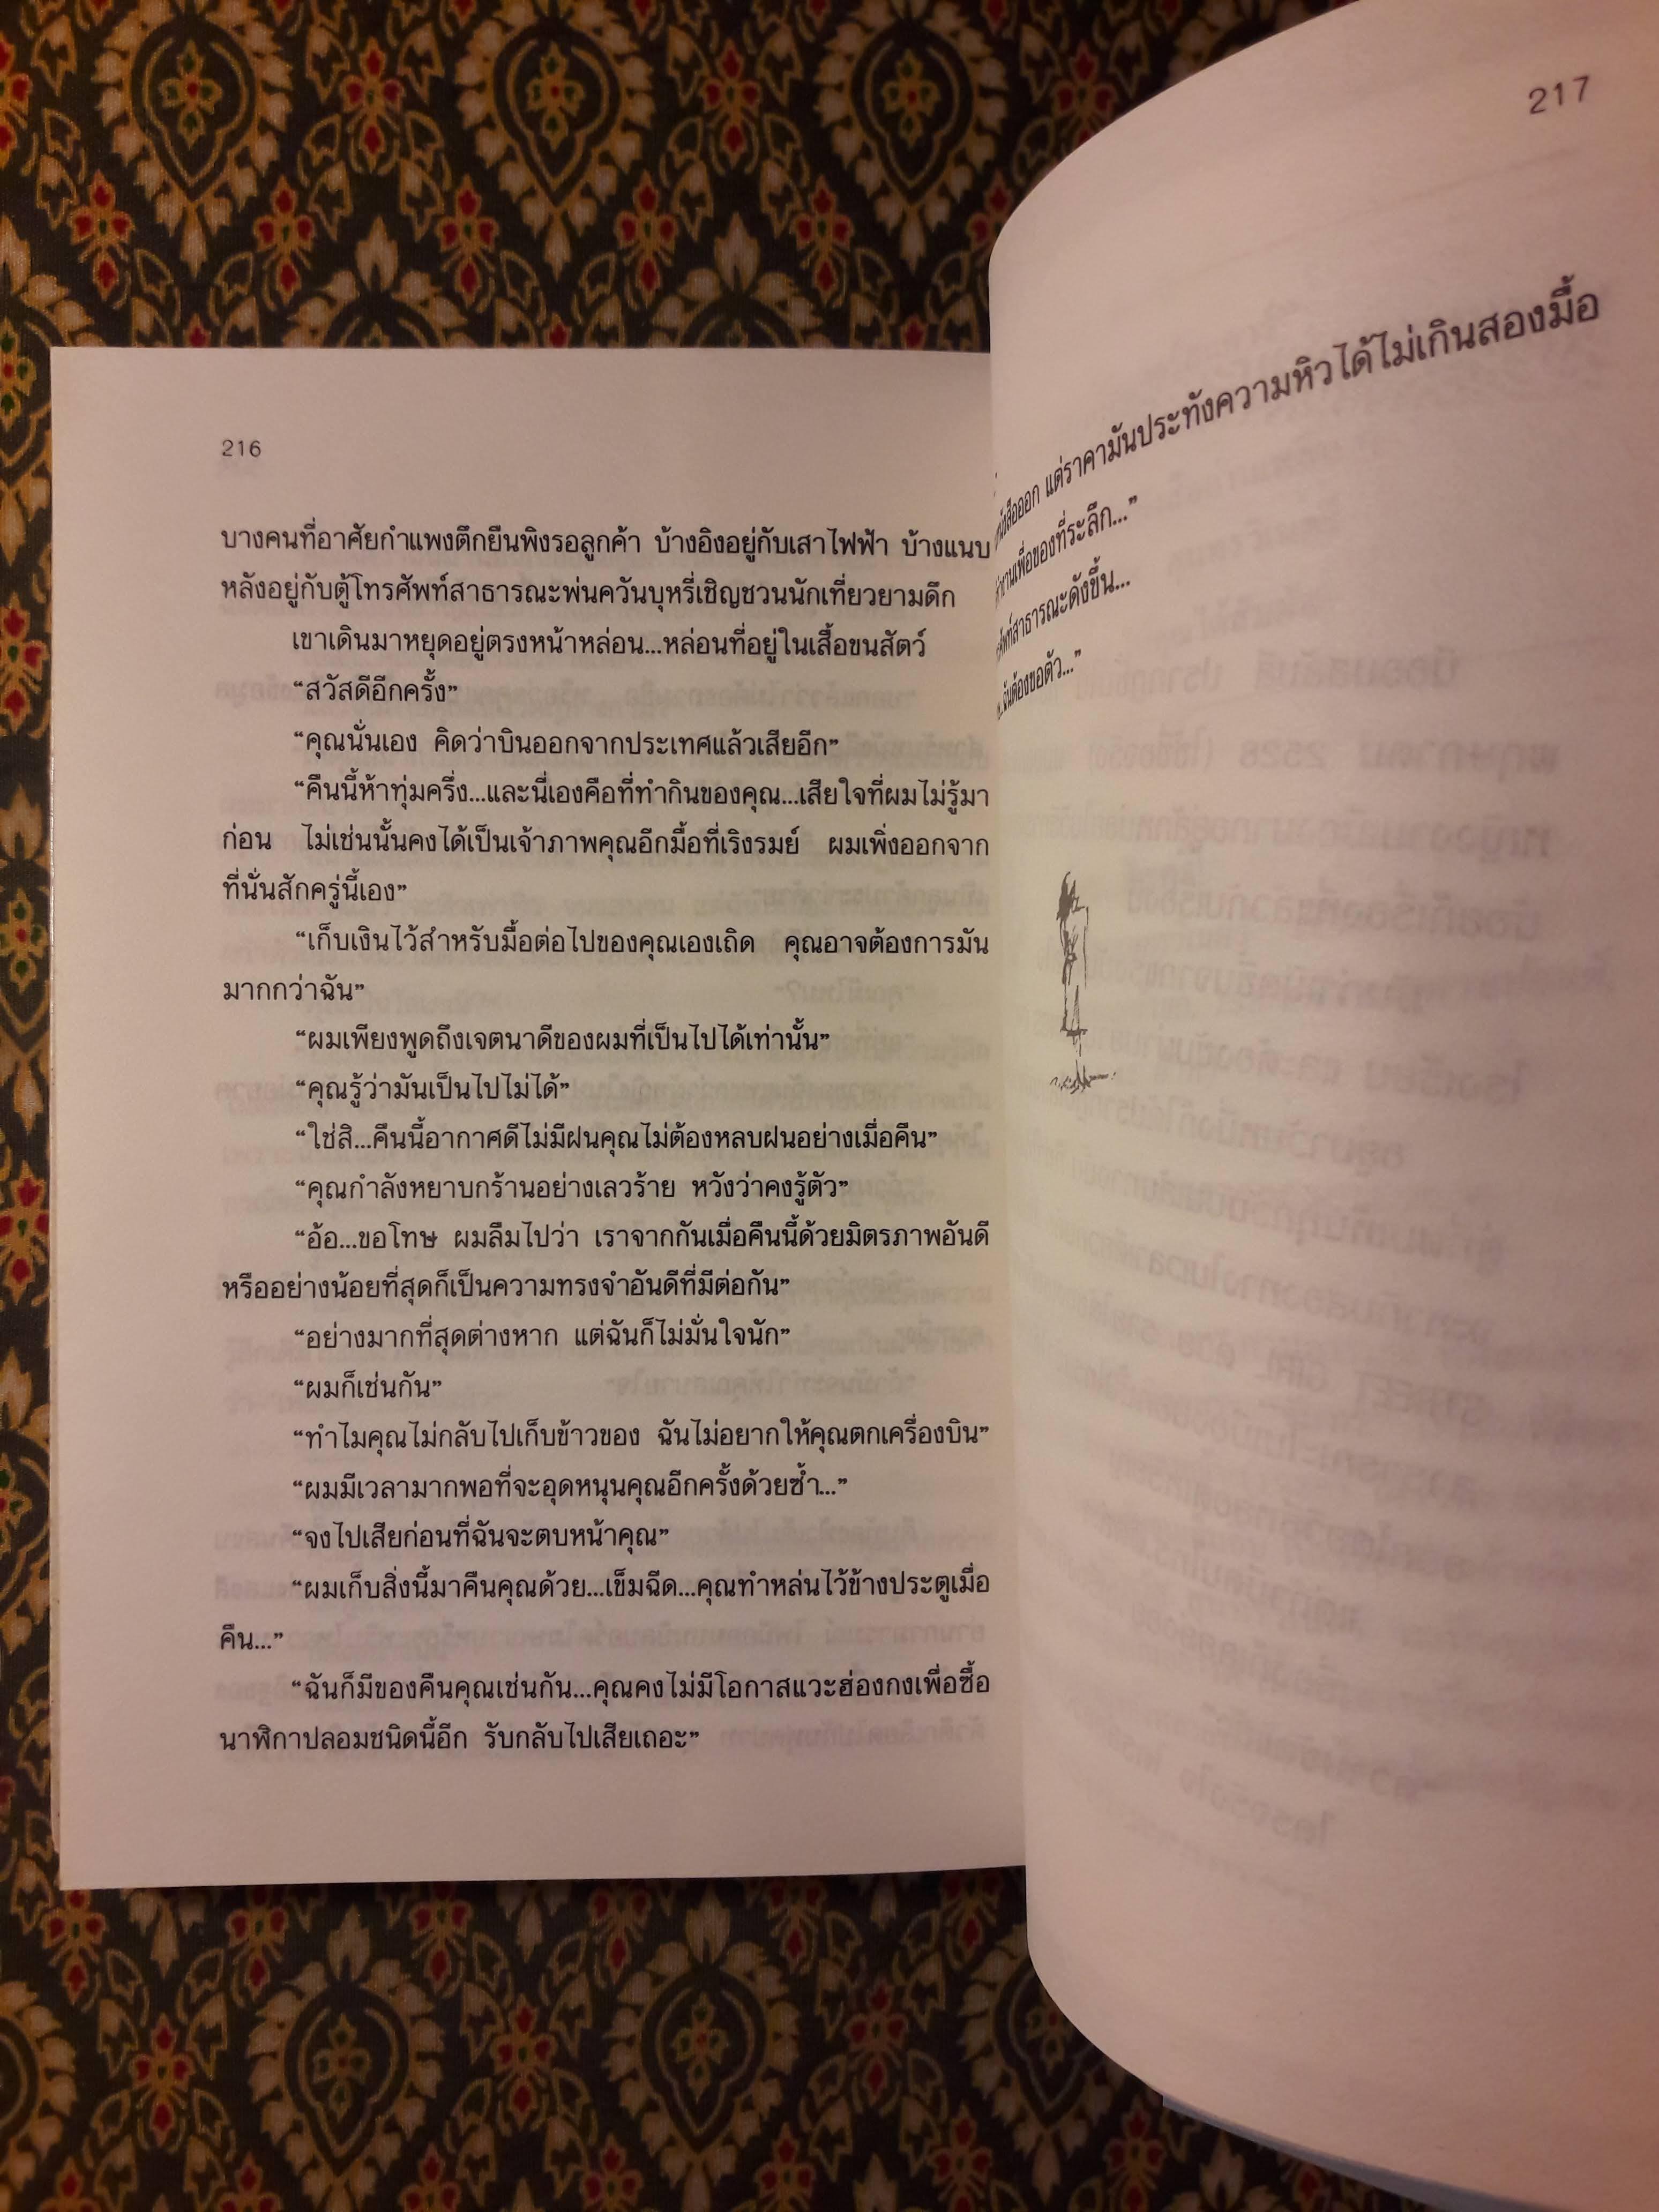 216
บางคนที่อาศัยกำแพงตึกยืนพิงรอลูกค้า บ้างอิงอยู่กับเสาไฟฟ้า บ้างแนบ
หลังอยู่กับตู้โทรศัพท์สาธารณะพ่นควันบุหรี่เชิญชวนนักเที่ยวยามดึก
เขาเดินมาหยุดอยู่ตรงหน้าหล่อน...หล่อนที่อยู่ในเสื้อขนสัตว์
“สวัสดีอีกครั้ง”
“คุณนั่นเอง คิดว่าบินออกจากประเทศแล้วเสียอีก”
“คืนนี้ห้าทุ่มครึ่ง...และนี่เองคือที่ทำกินของคุณ...เสียใจที่ผมไม่รู้มา
ก่อน ไม่เช่นนั้นคงได้เป็นเจ้าภาพคุณอีกมื้อที่เริงรมย์ ผมเพิ่งออกจาก
ที่นั่นสักครู่นี้เอง”
“เก็บเงินไว้สำหรับมื้อต่อไปของคุณเองเถิด คุณอาจต้องการมัน
มากกว่าฉัน”
“ผมเพียงพูดถึงเจตนาดีของผมที่เป็นไปได้เท่านั้น”
“คุณรู้ว่ามันเป็นไปไม่ได้”
“ใช่สิ...คืนนี้อากาศดีไม่มีฝนคุณไม่ต้องหลบฝนอย่างเมื่อคืน”
“คุณกำลังหยาบกร้านอย่างเลวร้าย หวังว่าคงรู้ตัว”
“อ้อ...ขอโทษ ผมลืมไปว่า เราจากกันเมื่อคืนนี้ด้วยมิตรภาพอันดี
หรืออย่างน้อยที่สุดก็เป็นความทรงจำอันดีที่มีต่อกัน”
“อย่างมากที่สุดต่างหาก แต่ฉันก็ไม่มั่นใจนัก”
“ผมก็เช่นกัน”
“ทำไมคุณไม่กลับไปเก็บข้าวของ ฉันไม่อยากให้คุณตกเครื่องบิน”
“ผมมีเวลามากพอที่จะอุดหนุนคุณอีกครั้งด้วยซ้ำ...”
“จงไปเสียก่อนที่ฉันจะตบหน้าคุณ”
“ผมเก็บสิ่งนี้มาคืนคุณด้วย...เข็มฉีด...คุณทำหล่นไว้ข้างประตูเมื่อ
คืน...”
“ฉันก็มีของคืนคุณเช่นกัน...คุณคงไม่มีโอกาสแวะฮ่องกงเพื่อซื้อ
นาฬิกาปลอมชนิดนี้อีก รับกลับไปเสียเถอะ”
217
แต่ราคามันประทังความหิวได้ไม่เกินสองมื้อ
เพื่อของที่ระลึก...”
สาธารณะดังขึ้น...
ฉันต้องขอตัว...”